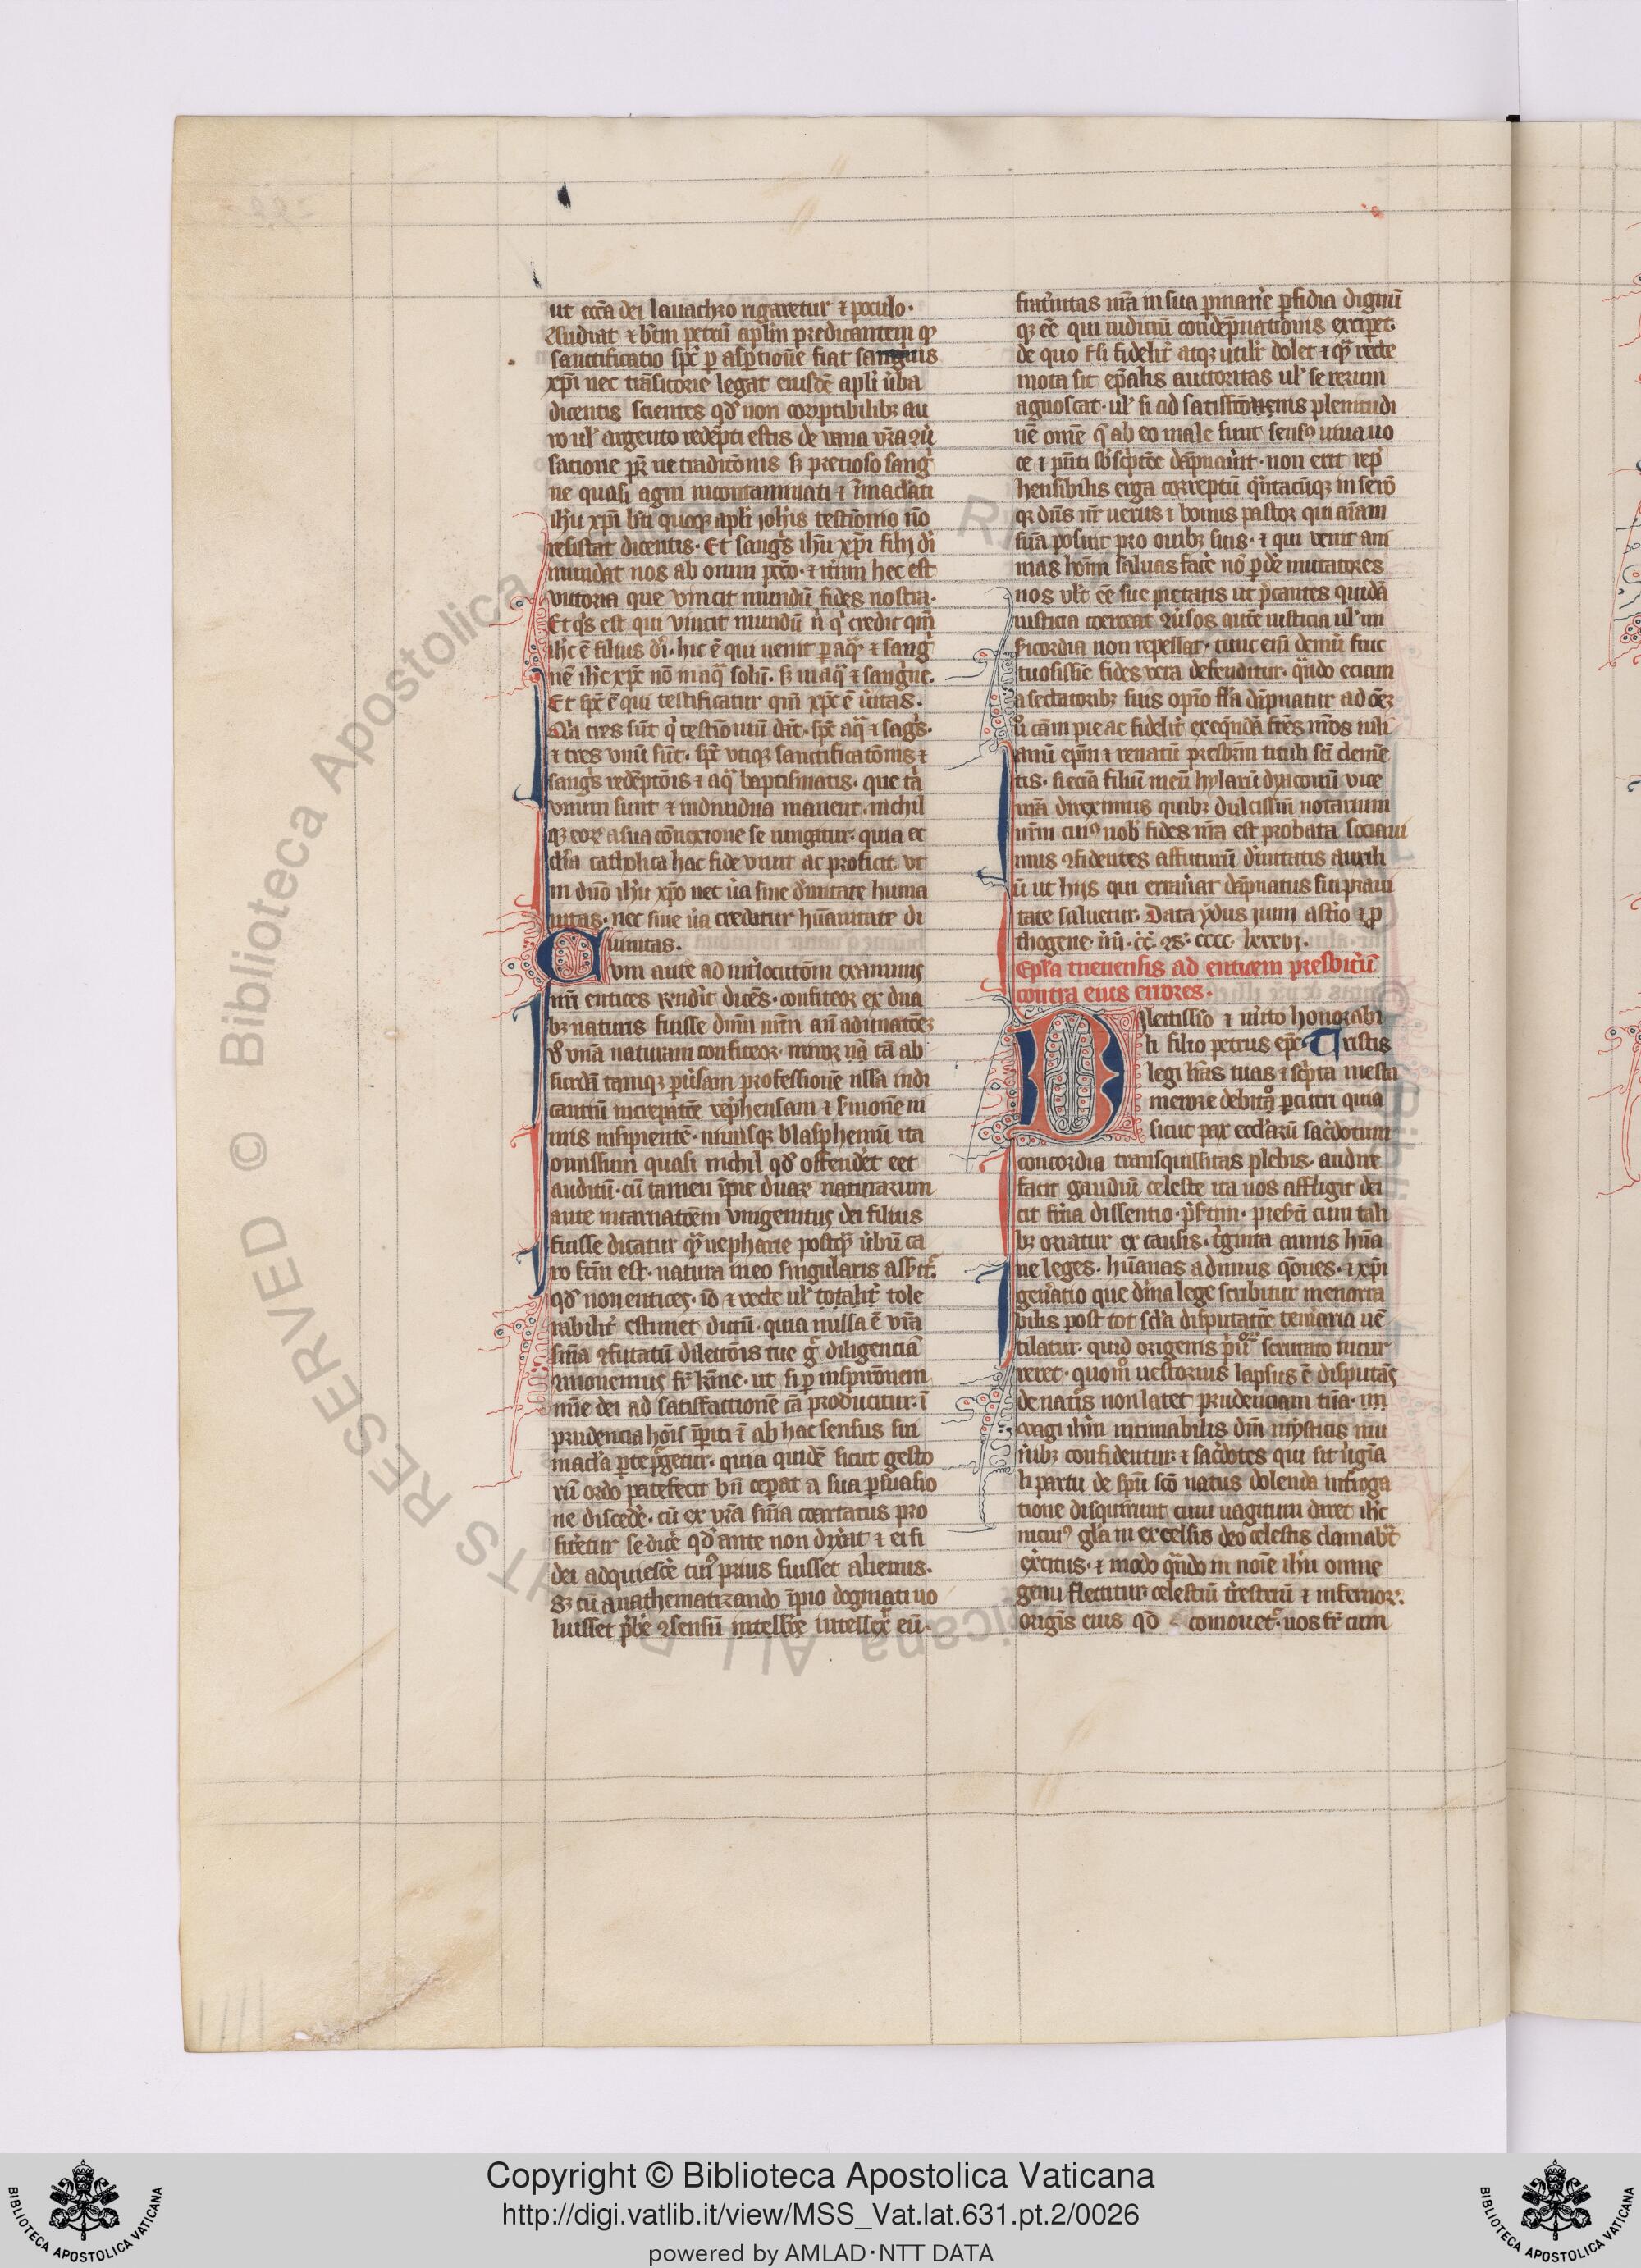 ut ecc̄a dei lauachro rigaretur ⁊ poculo·
Audiat ⁊ btm̄ petrū apl̄m predicantem ꝙ
sanctificatio spc̄ ꝑ asp̄tionē fiat sanguis
xp̄i nec trāsitorie legat eiusdē apl̄i ūba
dicentis scientes qd̄ non corrp̄tibilibꝫ au
ro ul̓ argento redēpti estis de uana vr̄a ꝯuͥ
satione pr̄ne traditōnis sꝫ pretioso sangͥ
ne quasi agni incontaminati ⁊ īmaclati
ih̄u xp̄i bt̄i quoqꝫ apl̄i joh̓is testīonio nō
resistat dicentis· Et sangͥs ih̄u xp̄i filij di
mundat nos ab omni pccō· ⁊ itm̄ hec est
victoria que vincit mundū fides nostra·
Et qͥs est qui vincit mundū nͥ qͥ credit qm̄
ih̄c ē filius di· hic ē qui uenit ꝑ aqᷓ ⁊ sangͥ
nē ih̄c xp̄c nō in aqᷓ solū· sꝫ in aqᷓ ⁊ sangͥne·
Et spc̄ ē qui testificatur qm̄ xp̄c ē ūitas·
Qͥa tres sūt qͥ testīoniū dāt· spc̄ aqᷓ ⁊ sagͥs·
⁊ tres vnū sūt· spc̄ vtiqꝫ sanctificatōnis ⁊
sangͥs redēptōis ⁊ aqᷓ baptismatis· que tͥa
vnum sunt ⁊ indiuidua manent· nichil
qꝫ eoꝝ a sua cōnexione se iungitur· quia ec
cl̄ia catholica hac fide viuit ac proficit vt
in dn̄o ih̄u xp̄o nec ūa sine diuinitate huma
nitas· nec sine ūa credatur hūanitate di
uinitas.
Cvm autē ad int̓locutōm examinis
nr̄i euticcs rn̄dit dicēs· confiteor ex dua
bꝫ naturis fuisse dn̄m nr̄m an̄ adunatōeꝫ
vͦ vnā naturam confiteor· miror nā tā ab
surdā tamqꝫ puͥsam professionē nll̄a iudi
cantiū increpatōe rephensam ⁊ sͥmonē ni
mis insipientē· nimisqꝫ blasphemū ita
omissum quasi nichil qd̄ offenderet eēt
auditū· cū tamen īpie duarꝝ naturarum
ante incarnatōem vnigenitus dei filius
fuisse dicatur qᷓ nepharie postqᷓ ūbū ca
ro fcm̄ est· natura in eo singularis assͥitͬ·
qd̄ non eutices· id̄ ⁊ recte ul̓ totalit̓ tole
rabilit̓ estimet dictū· quia nulla ē vr̄a
sn̄ia ꝯfutatū dilectōis tue gͬ diligenciā
ꝯmonemus fr̄ k̄me· ut si ꝑ inspirōnem
mīe dei ad satisfactionē cā producitur· ī
prudencia hōis īpiti ⁊ ab hac sensus sui
macla ꝑte pͥgetur· quia quidē sicut gesto
rū ordo patefecit bn̄ ceperat a sua ꝑsuasio
ne discedē· cū ex vr̄a sn̄ia coartatus pro
fiteretur se dicē qd̄ ante non dixat ⁊ ei fi
dei adquiescē cuͥ prius fuisset alienus·
Sꝫ cū anathematizando īpio dogmati uo
luisset p̓bē ꝯsensū intellr̄e intellex̄ eū·
fratnitas vr̄a in sua ꝑmanē ꝑfidia dignū
qꝫ eē qui iudiciū condēpnationis exciꝑet·
de quo si fidelit̓ atqꝫ utilit̓ dolet ⁊ qᷓ recte
mota sit ep̄alis auctoritas ul̓ se rerum
agnoscat· ul̓ si ad satisfcōnenis plenitudi
nē omē qͥ ab eo male sunt sensꝰ uiua uo
ce ⁊ pn̄ti sb̓sc̓ptōe dāpnauͥit· non erit rep̓
hensibilis erga correptū qn̄tacūqꝫ miserō
qꝛ dn̄s nr̄ uerus ⁊ bonus pastor qui aīam
suā posuit pro ouibꝫ suis· ⁊ qui venit ani
mas hom̄ saluas facē nō ꝑdē imitatores
nos vlt̓ eē sue pietatis ut pͨcantes quidā
iusticia coerceat ꝯuͥsos autē iusticia ul̓ mi
sͥicordia non repellat· tunc eni demū fruc
tuosissīe fides vera defenditur· qn̄do eciam
a sectatoribꝫ suis opīo fl̄sa dāpnatur ad oēꝫ
vͦ cām pie ac fidelit̓ exeqn̄dā frēs nr̄os iuli
anū epm̄ ⁊ renatū presbrm̄ tituli sc̄i cleme
tis· siecia filiū meū hylariū dyaconū vice
mā direximus quibꝫ dulcissiū notarium
nr̄m cuiꝰ nob̓ fides nr̄a est probata sociaui
mus ꝯfidentes affuturū dīuitatis auxili
ū ut hijs qui errauͥat dāpnatus sui praui
tate saluetur. Data ydus junij astīo ⁊ ꝑ
thogene
Epl̄a rauennensis ad euticem presbiterū
contra eius errores·
Dilectissīo ⁊ uͥito honorabi
li filio petrus epc̄· Tristis
legi lr̄as tuas ⁊ sc̓pta mesta
merore debito ꝑcurri quia
sicut pax eccl̄iarū sac̓dotum
concordia tranquillitas plebis· audire
facit gaudiū celeste ita nos affligit dei
cit frn̄a dissentio· pͥsertim· presb̓i cum tali
bꝫ oriatur ex causis· tͥginta annis hūa
ne leges· hūanas adimus qōnes· ⁊ xp̄i
genͥatio que diuina lege scribitur menorra
bilis post tot scl̄a disputatōe temāria uē
tilatur· quid origenis pͥncͥpiorꝝ scrutato incur
reret· quom̄ nestorius lapsus ē disputās
de naturͥs non latet prudenciam tuā·
magi ih̄m incunabilis dn̄m mysticis mu
nͥibꝫ confidentur· ⁊ sac̓dotes qui sit uͥgīa
li partu de spū scō natus dolenda int̓roga
tione disquirunt cum uagitum daret ih̄c
in cuiꝰ gl̄a in excelsis deo celestis clamabat
exercitus· ⁊ modo qn̄do in noīe ih̄u omne
genu flectitur celestiū trestriū ⁊ infernorꝝ·
origīs eius qō comouetͬ· nos fr̄ cum
Copyright © Biblioteca Apostolica Vaticana
http://digi.vatlib.it/view/MSS_Vat.lat.631.pt.2/0026
powered by AMLAD·NTT DATA
BIBLIOTECA APOSTOLICA VATICANA
BIBLIOTECA APOSTOLICA VATICANA